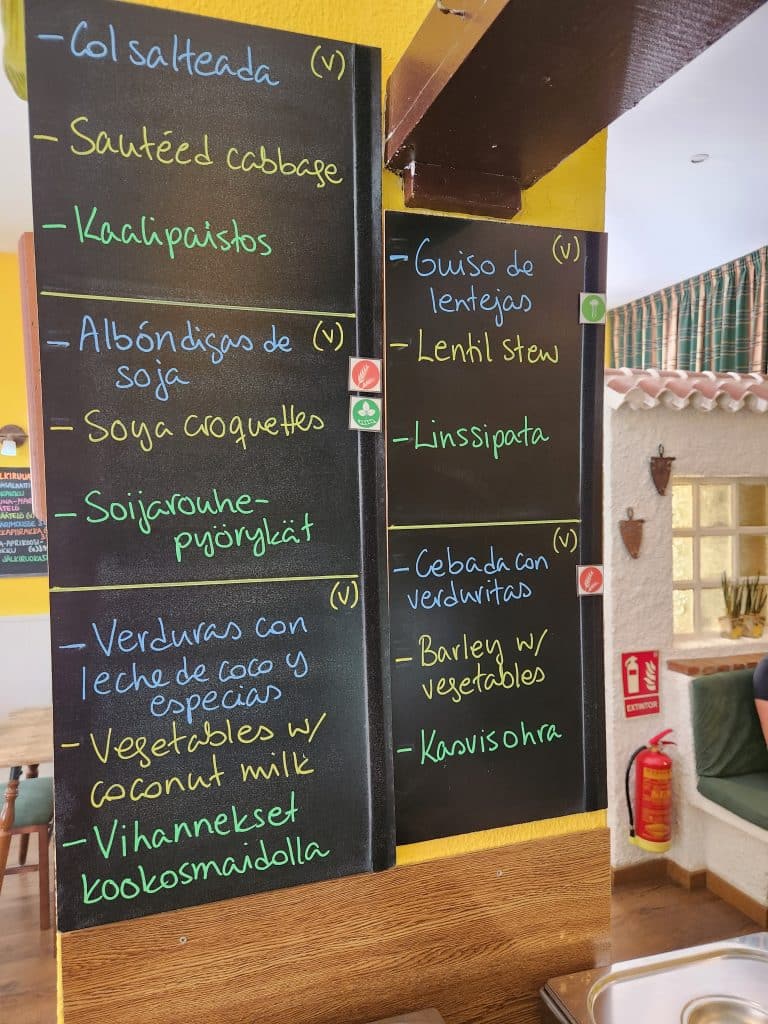 - Col salteada (v)
- Sautéed cabbage
- Kaalipaistos
- Albóndigas de (v)
soja
- Soya croquettes
- Soijarouhe-
pyörykät
(v)
- Verduras con
leche de coco y
especias
- Vegetables w/
coconut milk
- Vihannekset
kookosmaidolla
- Guiso de (v)
lentejas
- Lentil stew
- Linssipata
(v)
- Cebada con
verduritas
- Barley w/
vegetables
- Kasvisohra
EXTINTOR